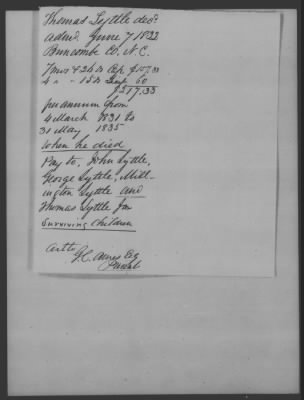 Thomas Lyttle decd
June 7 1822
Buncombe Co. N.C.
7 mos & 24 ds Cap $157.33
4 " - 15 ds 60
$217.33
per annum from
4 March 1831 to
31 May 1835
when he died
Pay to, John Lyttle,
George Lyttle, Mill-
ington Lyttle and
Thomas Lyttle Jr
Surviving Children
Esq
Present